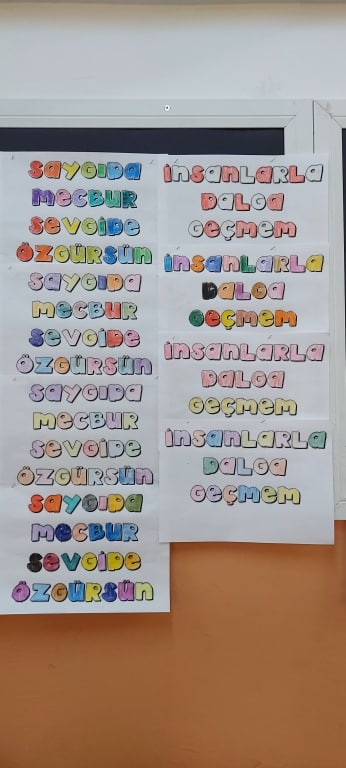 SAYGIDA
MECBUR
SEVGİDE
ÖZGÜRSÜN
SAYGIDA
MECBUR
SEVGİDE
ÖZGÜRSÜN
SAYGIDA
MECBUR
SEVGİDE
ÖZGÜRSÜN
SAYGIDA
MECBUR
SEVGİDE
ÖZGÜRSÜN
İNSANLARLA
DALGA
GEÇMEM
İNSANLARLA
DALGA
GEÇMEM
İNSANLARLA
DALGA
GEÇMEM
İNSANLARLA
DALGA
GEÇMEM